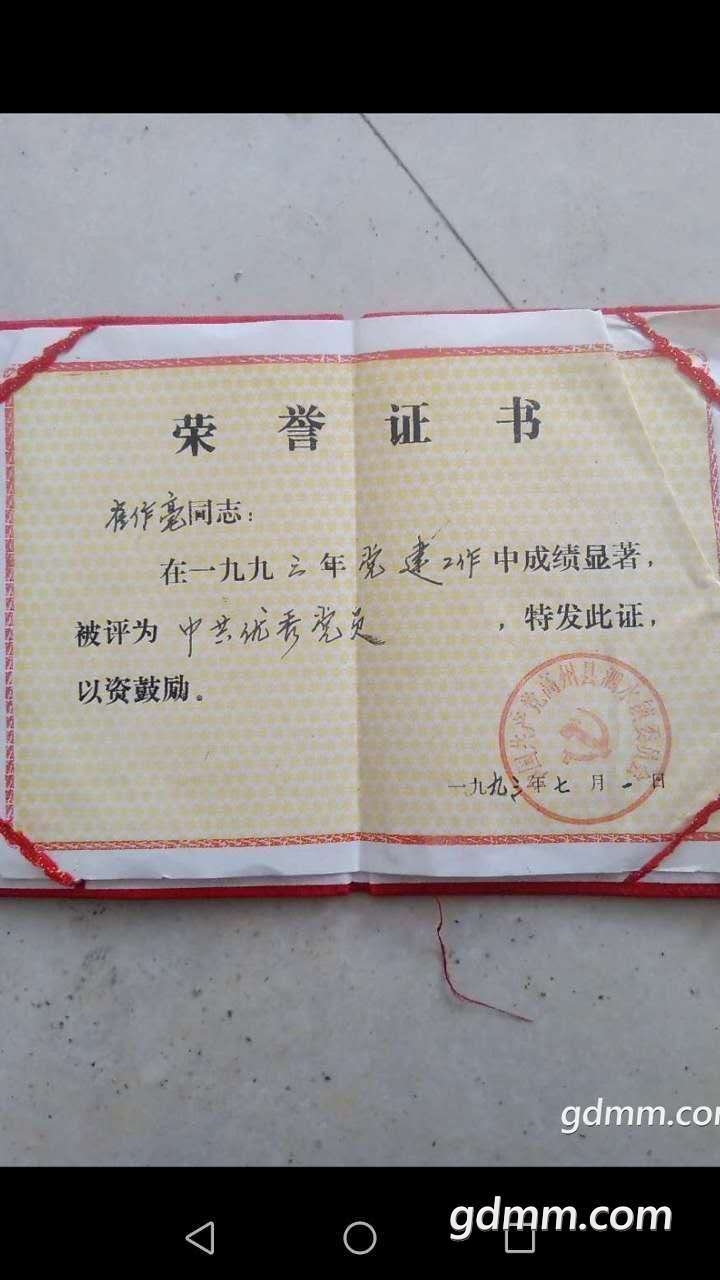 荣誉证书
崔作亮同志：
在一九九三年党建工作中成绩显著，
被评为 中共优秀党员 ，特发此证，
以资鼓励。
中国共产党高州县泗水镇委员会
一九九三年七月一日
gdmm.com
gdmm.com